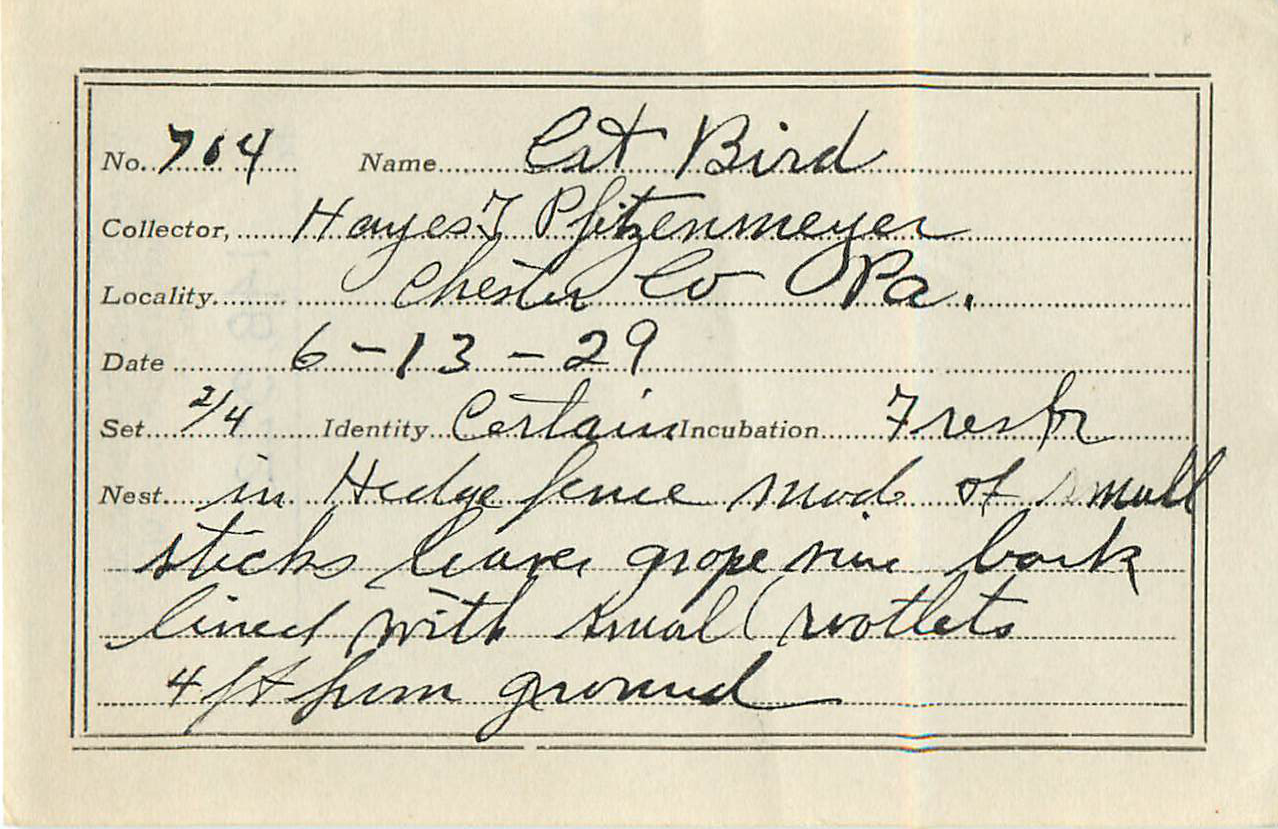 No. 704 Name Cat Bird
Collector, Hayes T Pfitzenmeyer
Locality Chester Co Pa.
Date 6-13-29
Set 2/4 Identity Certain Incubation Fresh
Nest in Hedge fence mad of small
sticks leaves grape vine bark
lined with small rootlets
4 ft from ground